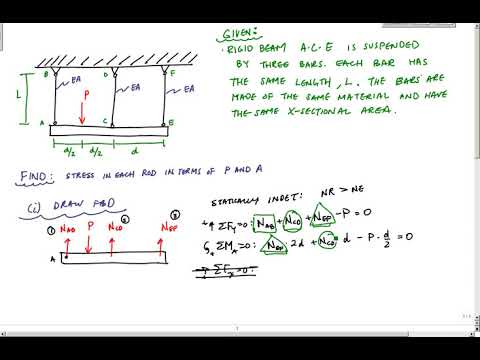 GIVEN:
• RIGID BEAM A.C.E IS SUSPENDED
BY THREE BARS. EACH BAR HAS
THE SAME LENGTH, L. THE BARS ARE
MADE OF THE SAME MATERIAL AND HAVE
THE SAME X-SECTIONAL AREA.
B D F
EA EA EA
L P
A C E
d/2 d/2 d
FIND: STRESS IN EACH ROD IN TERMS OF P AND A
(i) DRAW FBD
STATICALLY INDET: NR > NE
+↑ ΣFy=0: NAB + NCD + NEF - P = 0
ΣMA=0: NEF 2d + NCD d - P · d/2 = 0
ΣFx=0:
① ② ③
NAB P NCD NEF
A